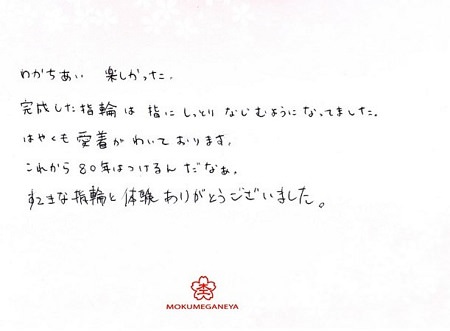 わかちあい 楽しかった.
完成した指輪は 指に しっとり なじむようになってました.
はやくも 愛着が わいております.
これから 80年はつけるんだなぁ.
すてきな指輪と体験ありがとうございました。
MOKUMEGANEYA